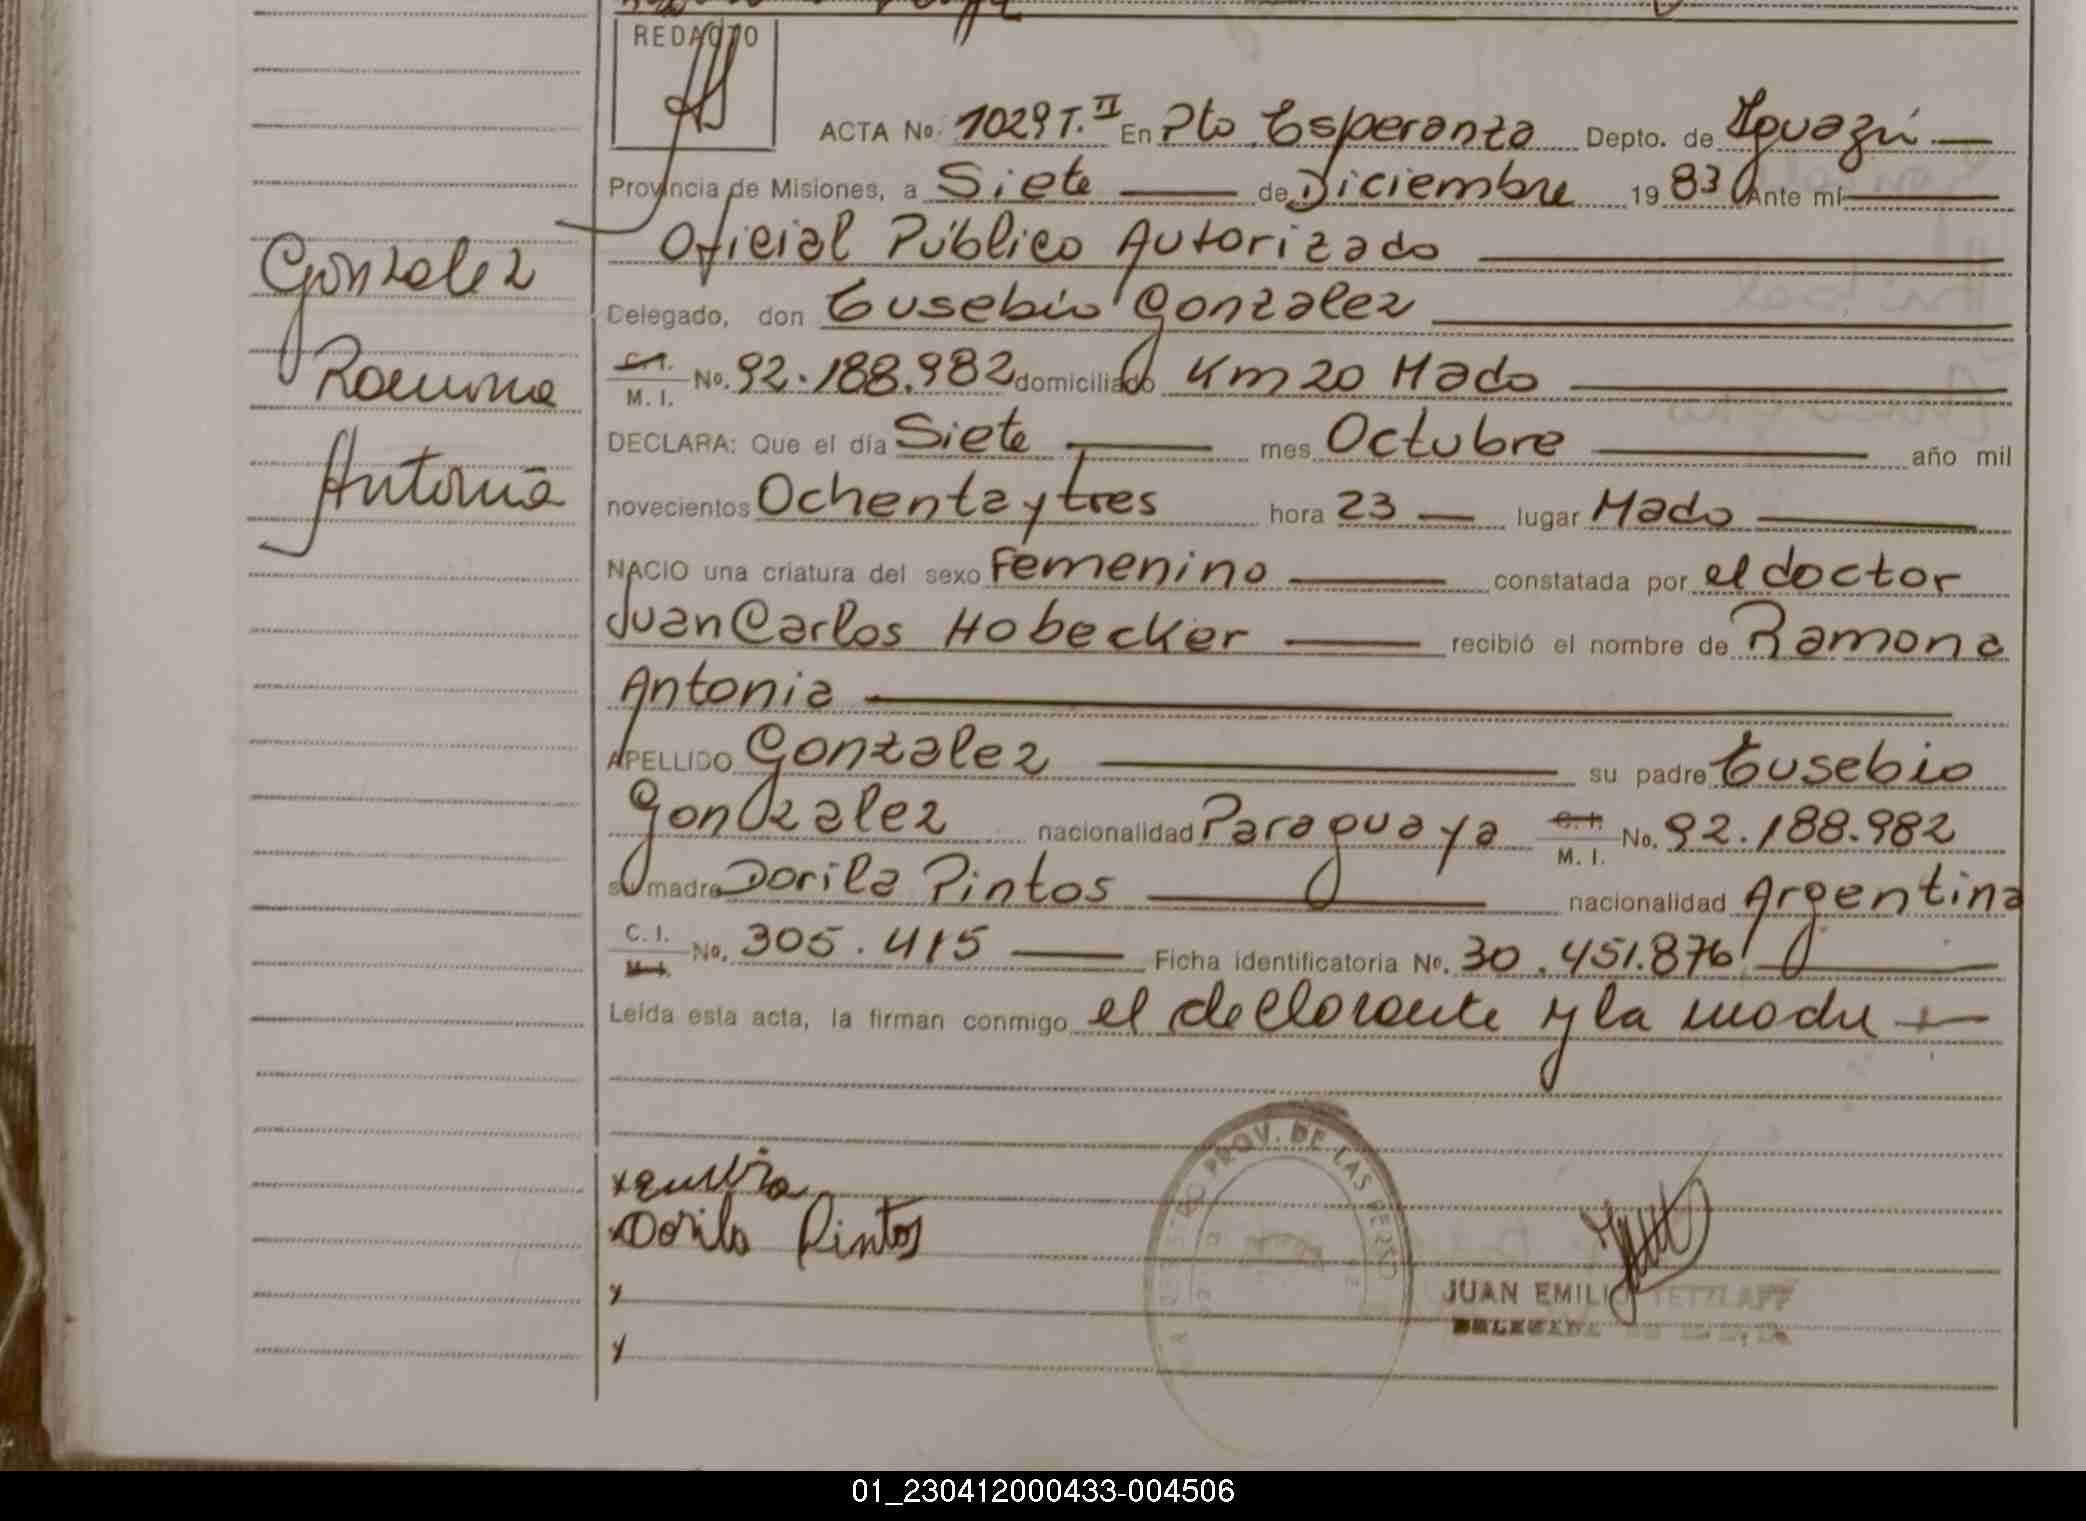 REDACTO
ACTA No. 1029 T. II En Pto Esperanza Depto. de Iguazú
Provincia de Misiones, a Siete de Diciembre 19 83 Ante mí
Oficial Público Autorizado
Delegado, don Eusebio Gonzalez
Gonzalez
C. I. M. I. No. 92.188.982 domiciliado Km 20 Mado
Ramona
DECLARA: Que el día Siete mes Octubre año mil
Antonia
novecientos Ochenta y tres hora 23 lugar Mado
NACIO una criatura del sexo Femenino constatada por el doctor
Juan Carlos Hobecker recibió el nombre de Ramona
Antonia
APELLIDO Gonzalez su padre Eusebio
Gonzalez nacionalidad Paraguaya C. I. M. I. No. 92.188.982
su madre Dorila Pintos nacionalidad Argentina
C. I. M. I. No. 305.415 Ficha identificatoria No. 30.451.876
Leída esta acta, la firman conmigo el declarante y la madre
PROV. DE LAS PERSO
x
Dorila Pintos
x
JUAN EMILI TETZLAFF
x
01_230412000433-004506